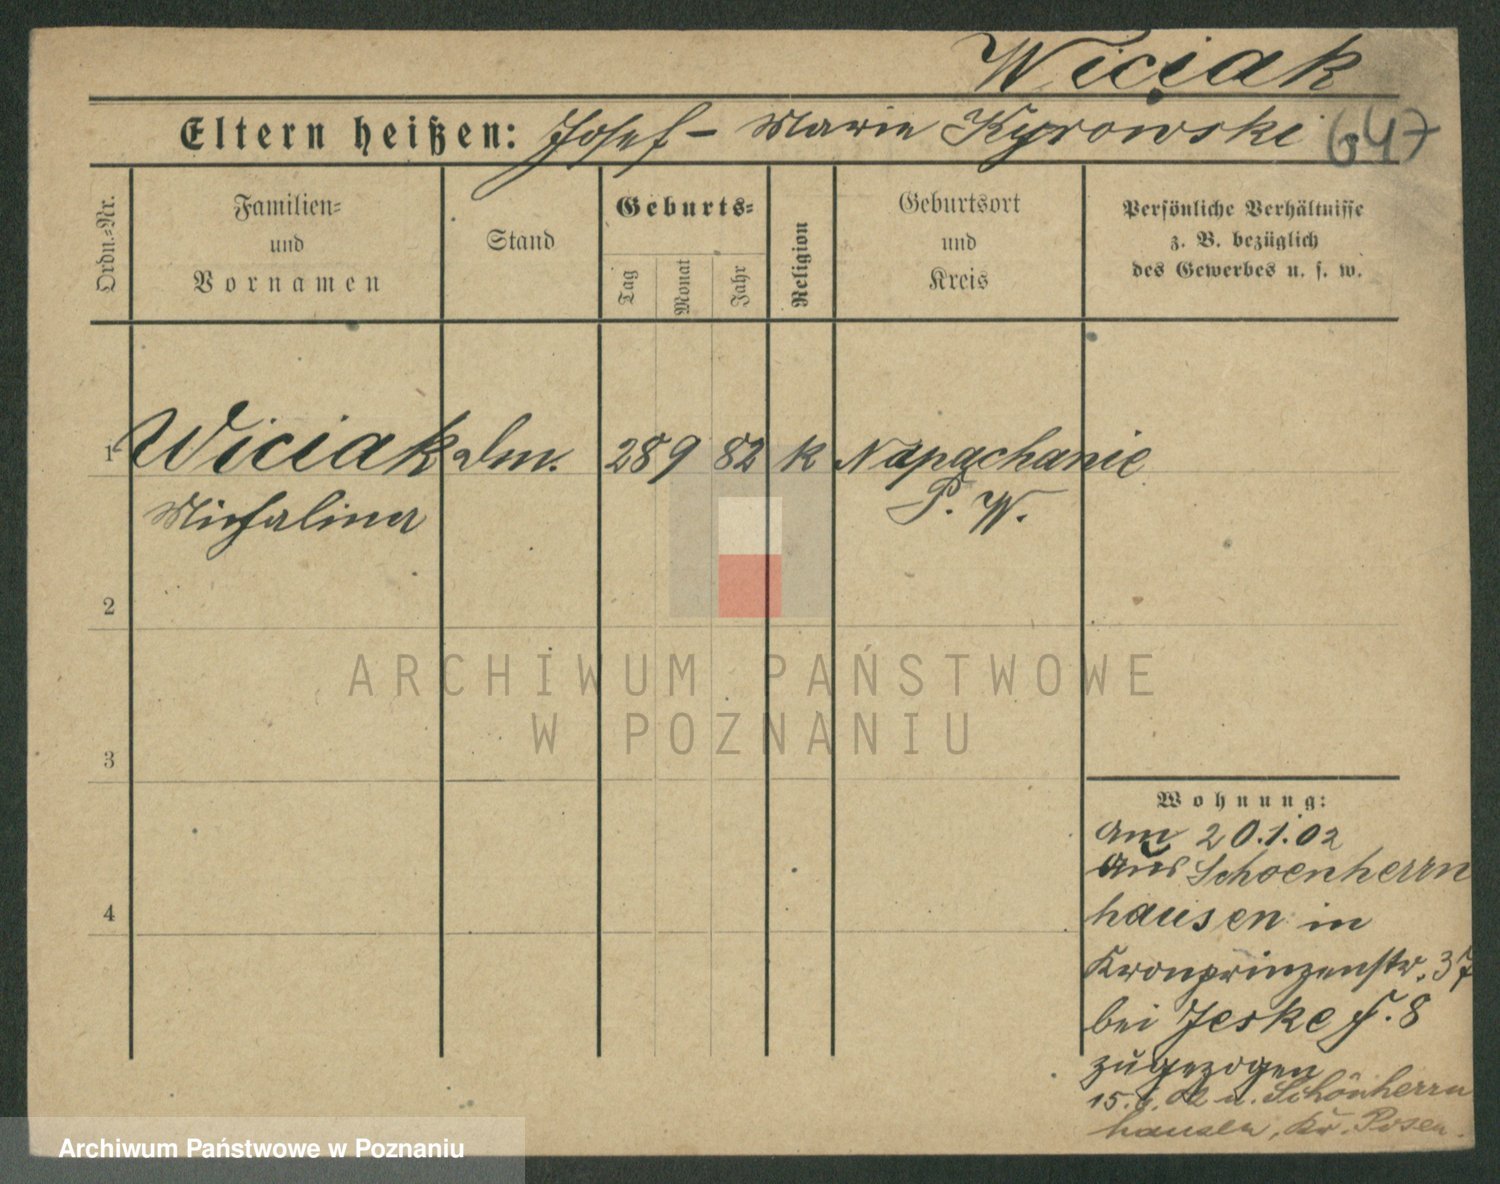 Wiciak
Eltern heißen: Josef - Marie Kyrowski 647
Ordn.=Nr.
Familien=
und
Vornamen
Stand
Geburts=
Tag
Monat
Jahr
Religion
Geburtsort
und
Kreis
Persönliche Verhältnisse
z. B. bezüglich
des Gewerbes u. s. w.
1 Wiciak Dm. 28 9 82 K Napachanie
Michalina P. W.
2
3
4
ARCHIWUM PAŃSTWOWE
W POZNANIU
Wohnung:
am 20.1.02
aus Schoenherrn
hausen in
Kronprinzenstr. 37
bei Jeske f. 8
zugezogen
15. 02 n. Schönherrn
hausen, Kr. Posen.
Archiwum Państwowe w Poznaniu